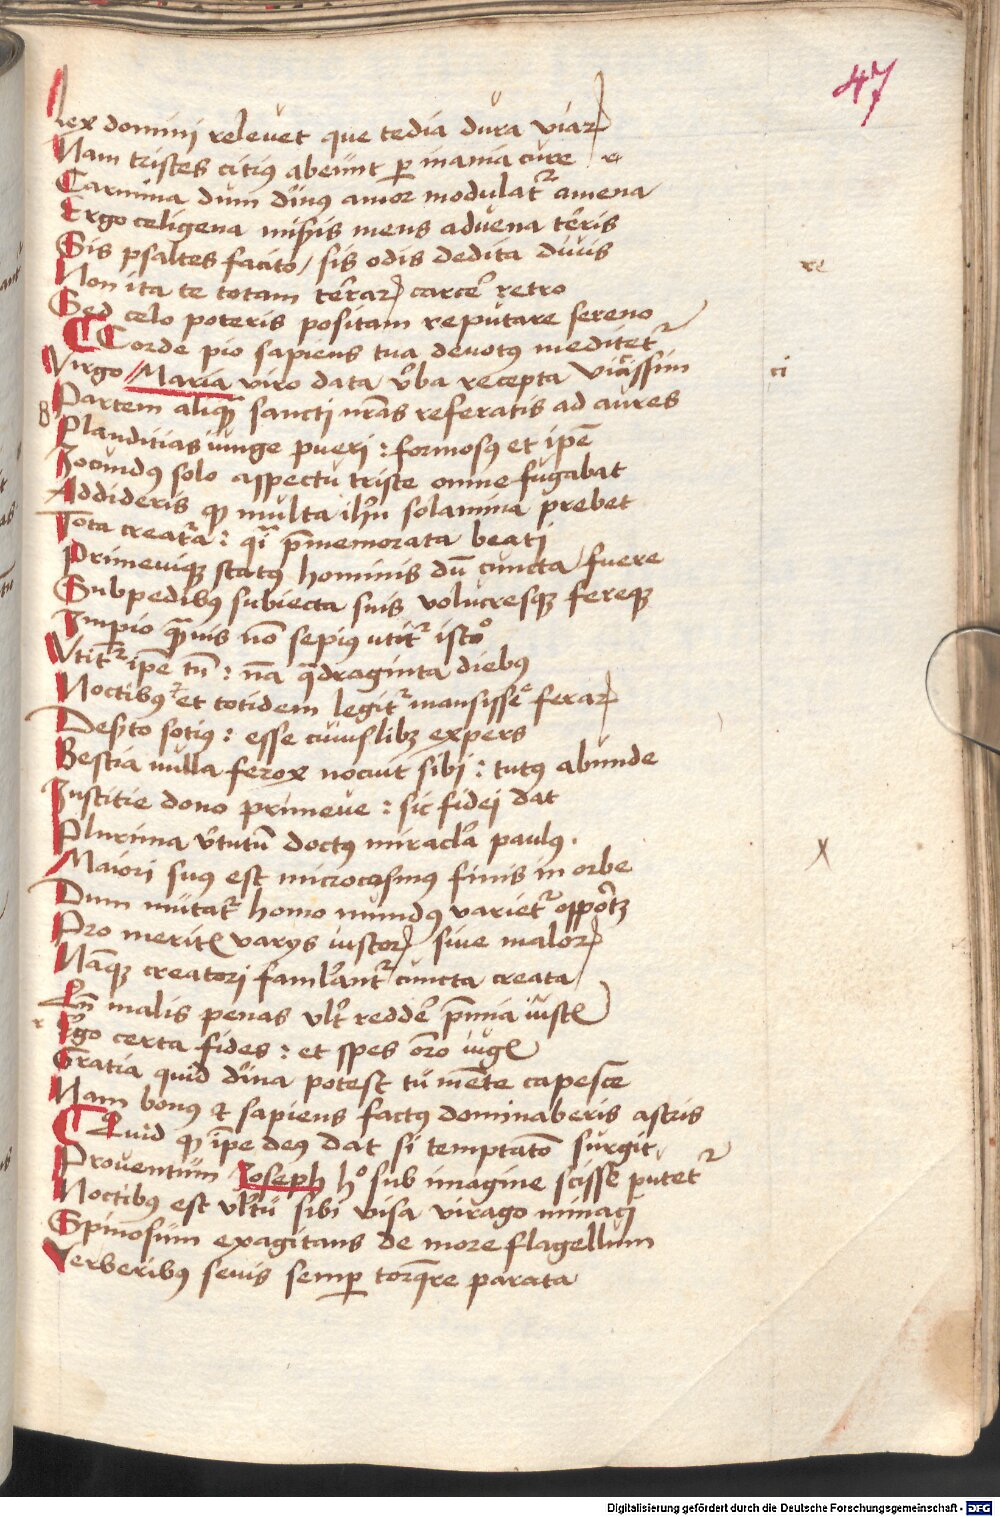 47
lex domini relevet que tedia dura viaꝝ
Nam tristes citiꝯ abeunt ꝑ inania cure
re
Carmina dum diuꝯ amor modulatᷣ amena
Ergo celigena misis mens aduena terris
Sis psaltes facito / sis odis dedita diuis
Non ita te totam terraꝝ carcere retro
Sed celo poteris positam reputare sereno
Corde pio sapiens tua deuotꝯ meditetᷣ
Virgo Maria viro data vba recepta vicissim
ci
Partem aliqꝫ sancti nras referatis ad aures
B
Planditias iunge pueri : formosꝯ et ipe
Jocundꝯ solo aspectu triste omne fugabat
Addideris qꝫ multa ihu solamina prebet
Tota creatᷣa : qi pmemorata beati
Primeuiqꝫ statꝯ hominis dū cuncta fuere
Subpedibꝯ subiecta suis volucresqꝫ fereqꝫ
Imperio quis nō sepiꝯ utitᷣ isto
Vtitᷣ ipe tn : na qdraginta diebꝯ
Noctibꝯ et totidem legitᷣ mansisse feraꝝ
Desrto sotiꝯ : esse cuiuslibꝫ expers
Bestia nulla ferox nocuit sibi : tutꝯ abunde
Justitie dono primeue : sic fidei dat
Plurima vtutū doctꝯ miracla paulꝯ .
x
Maiori suꝯ est microcosmꝯ finis in orbe
Dum mutatᷣ homo mundꝯ varietᷣ oportꝫ
Pro meritꝭ varys iustoꝝ siue maloꝝ
Nāqꝫ creatori famlantᷣ cuncta creata
Qn malis penas vlt redde pmia iustꝭ
r
Ergo certa fides : et spes oro iugꝭ
Gratia quid diuina potest tu mente capesce
Nam bonꝯ et sapiens factꝯ dominaberis astris
Quid qꝫ ipe deꝯ dat si temptatō surgit
Prouentum Joseph hoc sub imagine scisse putetᷣ
Noctibꝯ est vltu sibi visa virago minaci
Spinosum exagitans de more flagellum
Verberibꝯ seuis semꝑ torqre parata
Digitalisierung gefördert durch die Deutsche Forschungsgemeinschaft - DFG